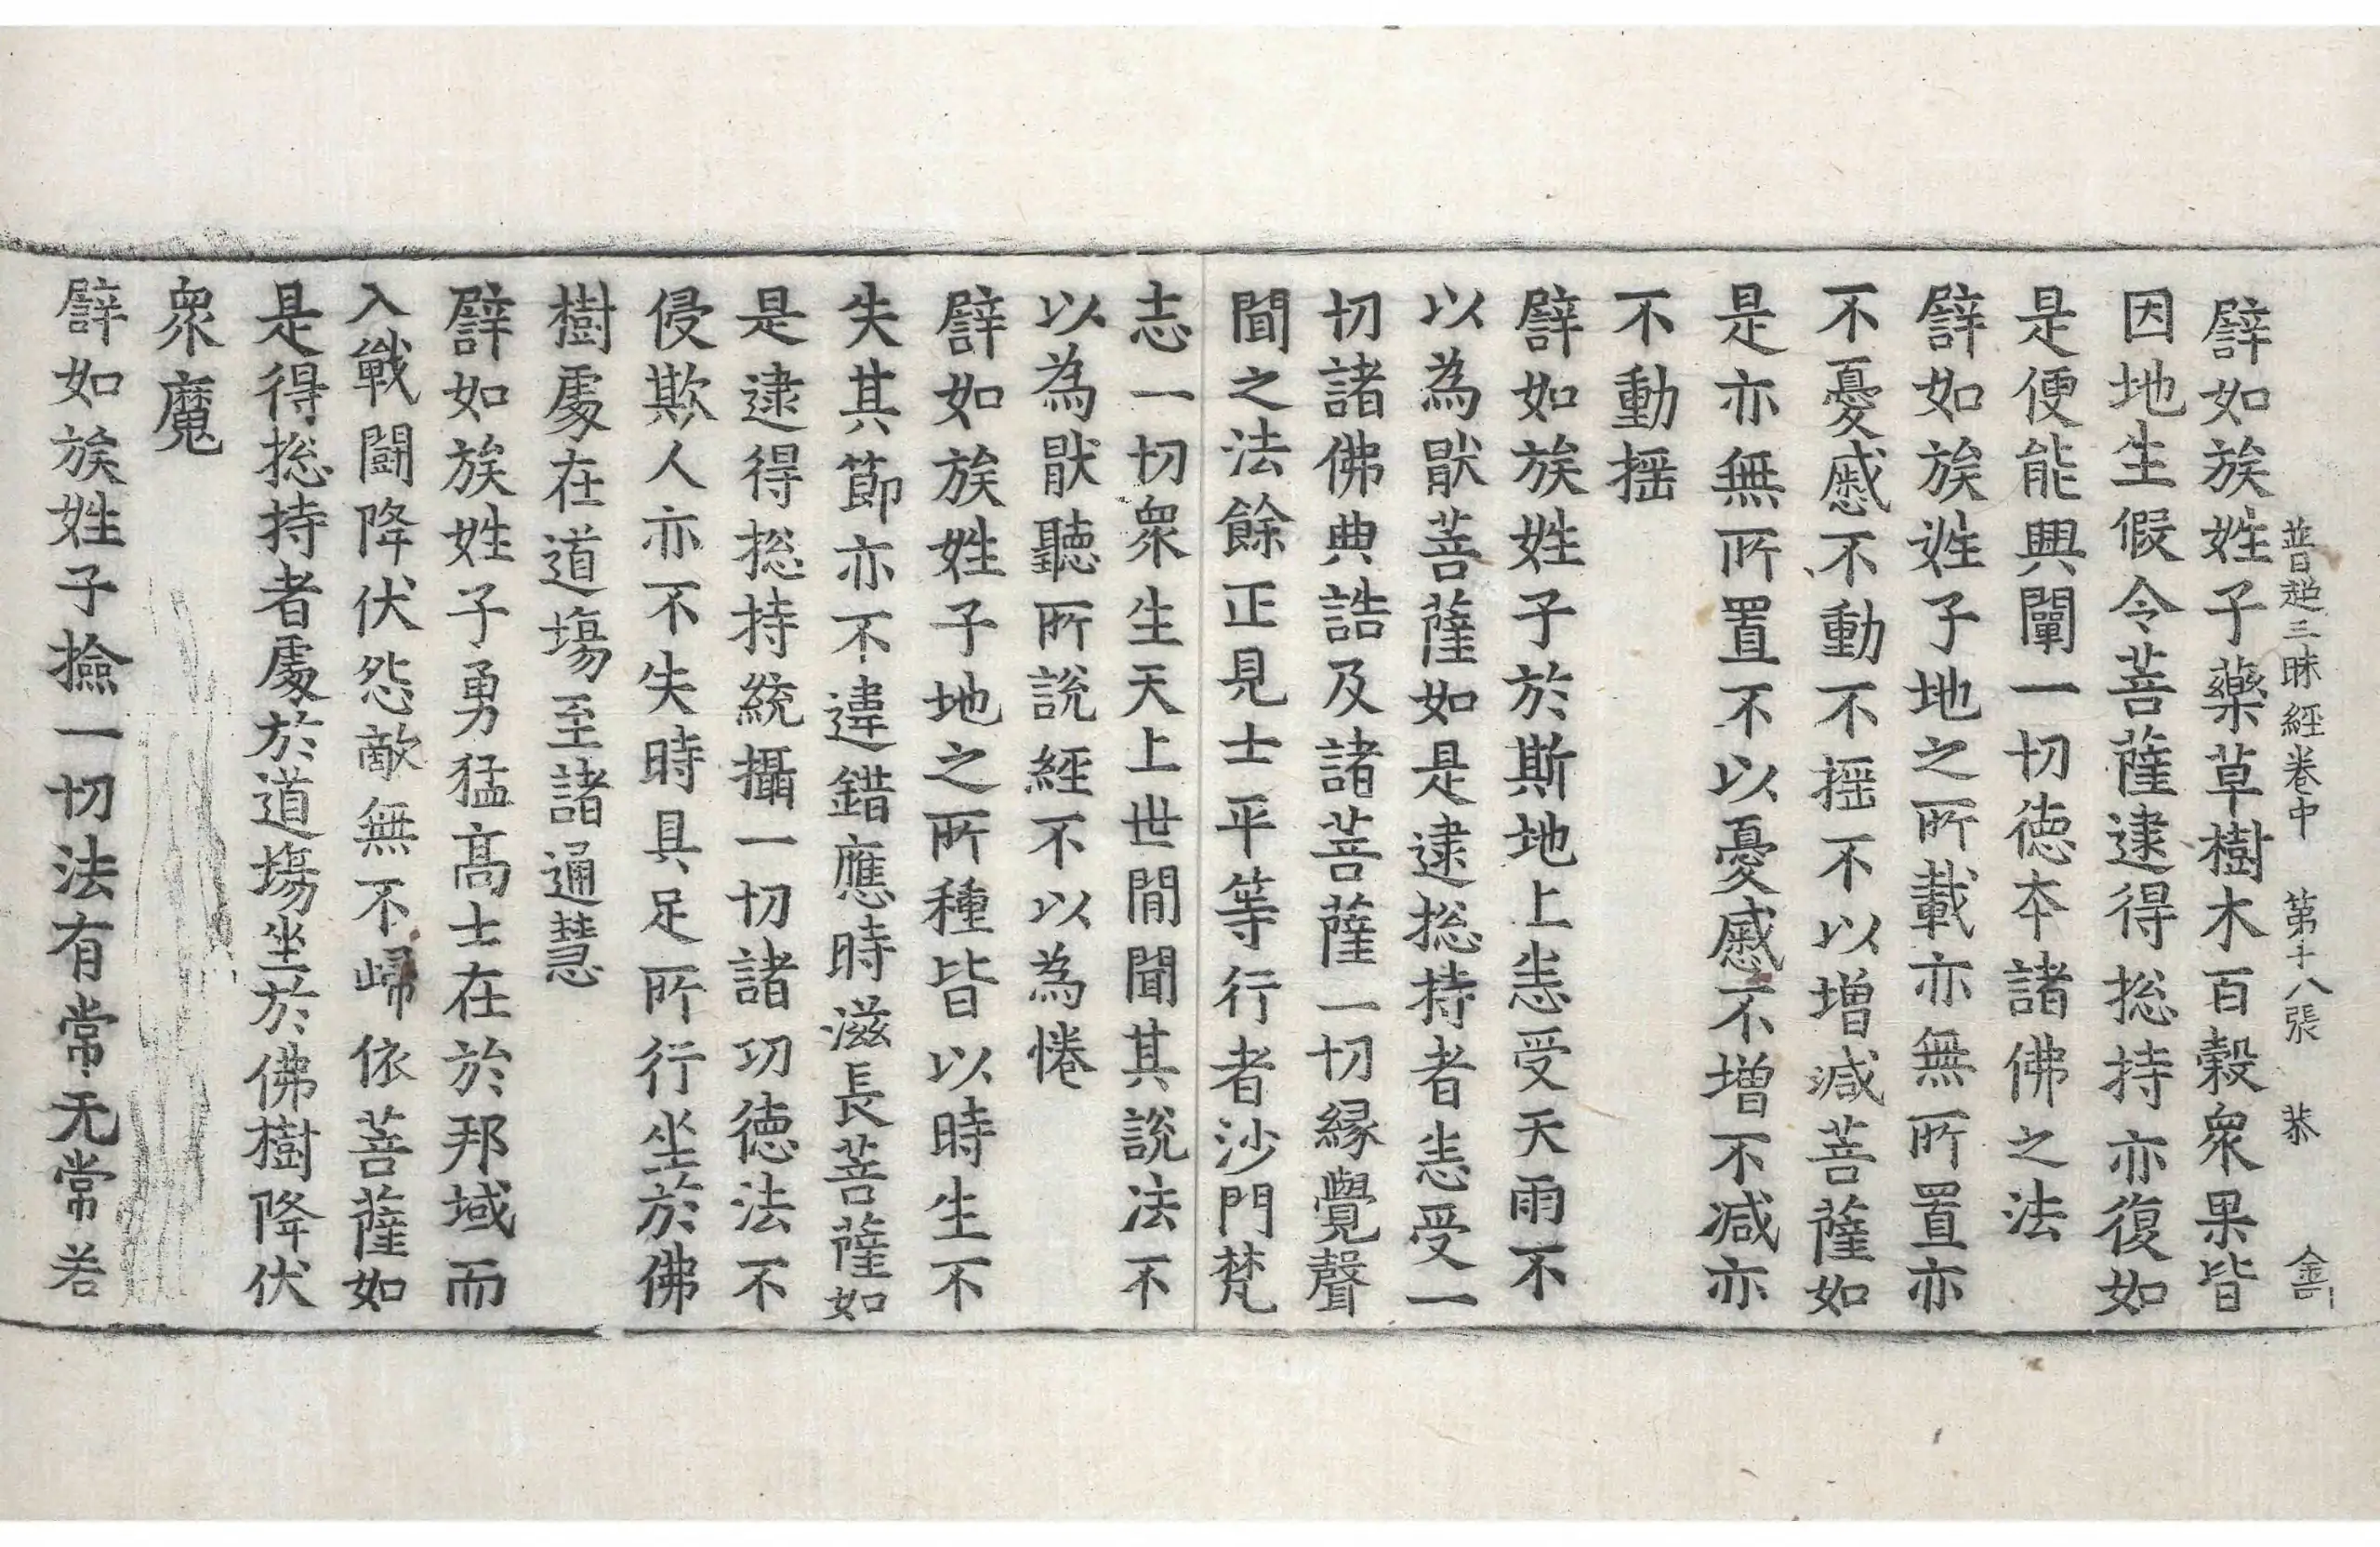 普超三昧經卷中 第十八張 恭
譬如族姓子藥草樹木百穀衆果皆
因地生假令菩薩逮得㧾持亦復如
是便能興闡一切德夲諸佛之法
譬如族姓子地之所載亦無所置亦
不憂慼不動不揺不以增減菩薩如
是亦無所置不以憂慼不增不減亦
不動揺
譬如族姓子於斯地上恚受天雨不
以為猒菩薩如是逮㧾持者恚受一
切諸佛典誥及諸菩薩一切縁覺聲
聞之法餘正見士平等行者沙門梵
志一切衆生天上世間聞其說法不
以為猒聽所說經不以為惓
譬如族姓子地之所種皆以時生不
失其節亦不違錯應時滋長菩薩如
是逮得㧾持統攝一切諸功德法不
侵欺人亦不失時具足所行坐於佛
樹處在道塲至諸通慧
譬如族姓子勇猛高士在於邦域而
入戰鬪降伏怨敵無不歸依菩薩如
是得㧾持者處於道塲坐於佛樹降伏
衆魔
譬如族姓子撿一切法有常无常若